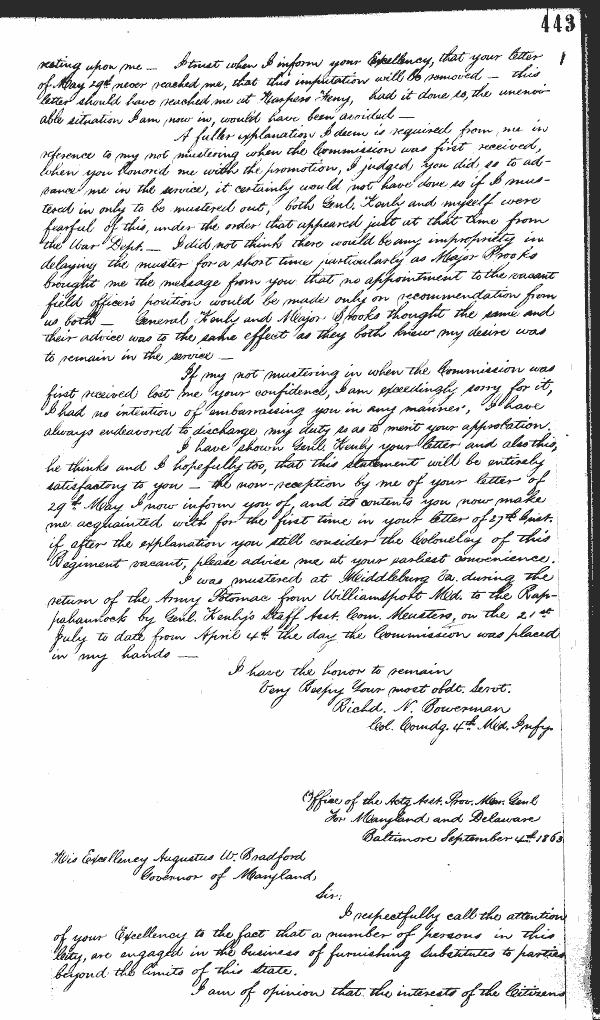 443
resting upon me — I trust when I inform your Excellency, that your letter
of May 29th never reached me, that this imputation will be removed — this
letter should have reached me at Harpers Ferry, had it done so, the unenvi-
able situation I am now in, would have been avoided —
A fuller explanation I deem is required from me in
reference to my not mustering when the Commission was first received,
when you honored me with the promotion, I judged you did so to ad-
vance me in the service, it certainly would not have done so if I mus-
tered in only to be mustered out, both Genl. Kenly and myself were
fearful of this, under the order that appeared just at that time from
the War Dept. — I did not think there would be any impropriety in
delaying the muster for a short time particularly as Major Brooks
brought me the message from you that no appointment to the vacant
field officers position would be made only on recommendation from
us both — General Kenly and Major Brooks thought the same and
their advice was to the same effect as they both knew my desire was
to remain in the service —
If my not mustering in when the Commission was
first received lost me your confidence, I am exceedingly sorry for it,
I had no intention of embarrassing you in any manner, I have
always endeavored to discharge my duty so as to merit your approbation.
I have shown Genl Kenly your letter and also this,
he thinks and I hopefully too, that this statement will be entirely
satisfactory to you — the non-reception by me of your letter of
29th May I now inform you of, and its contents you now make
me acquainted with for the first time in your letter of 27th Inst.
if after the explanation you still consider the Colonelcy of this
Regiment vacant, please advise me at your earliest convenience.
I was mustered at Middleburg Va. during the
return of the Army Potomac from Williamsport Md. to the Rap-
pahannock by Genl. Kenly's Staff Asst. Com. Musters, on the 21st
July to date from April 4th the day the Commission was placed
in my hands —
I have the honor to remain
Very Respy Your most obdt. Servt.
Richd. N. Bowerman
Col. Comdg. 4th Md. Infy.
Office of the Actg Asst. Prov. Mar. Genl
For Maryland and Delaware
Baltimore September 4th 1863
His Excellency Augustus W. Bradford
Governor of Maryland,
Sir:
I respectfully call the attention
of your Excellency to the fact that a number of persons in this
City, are engaged in the business of furnishing Substitutes to parties
beyond the limits of this State.
I am of opinion that the interests of the Citizens